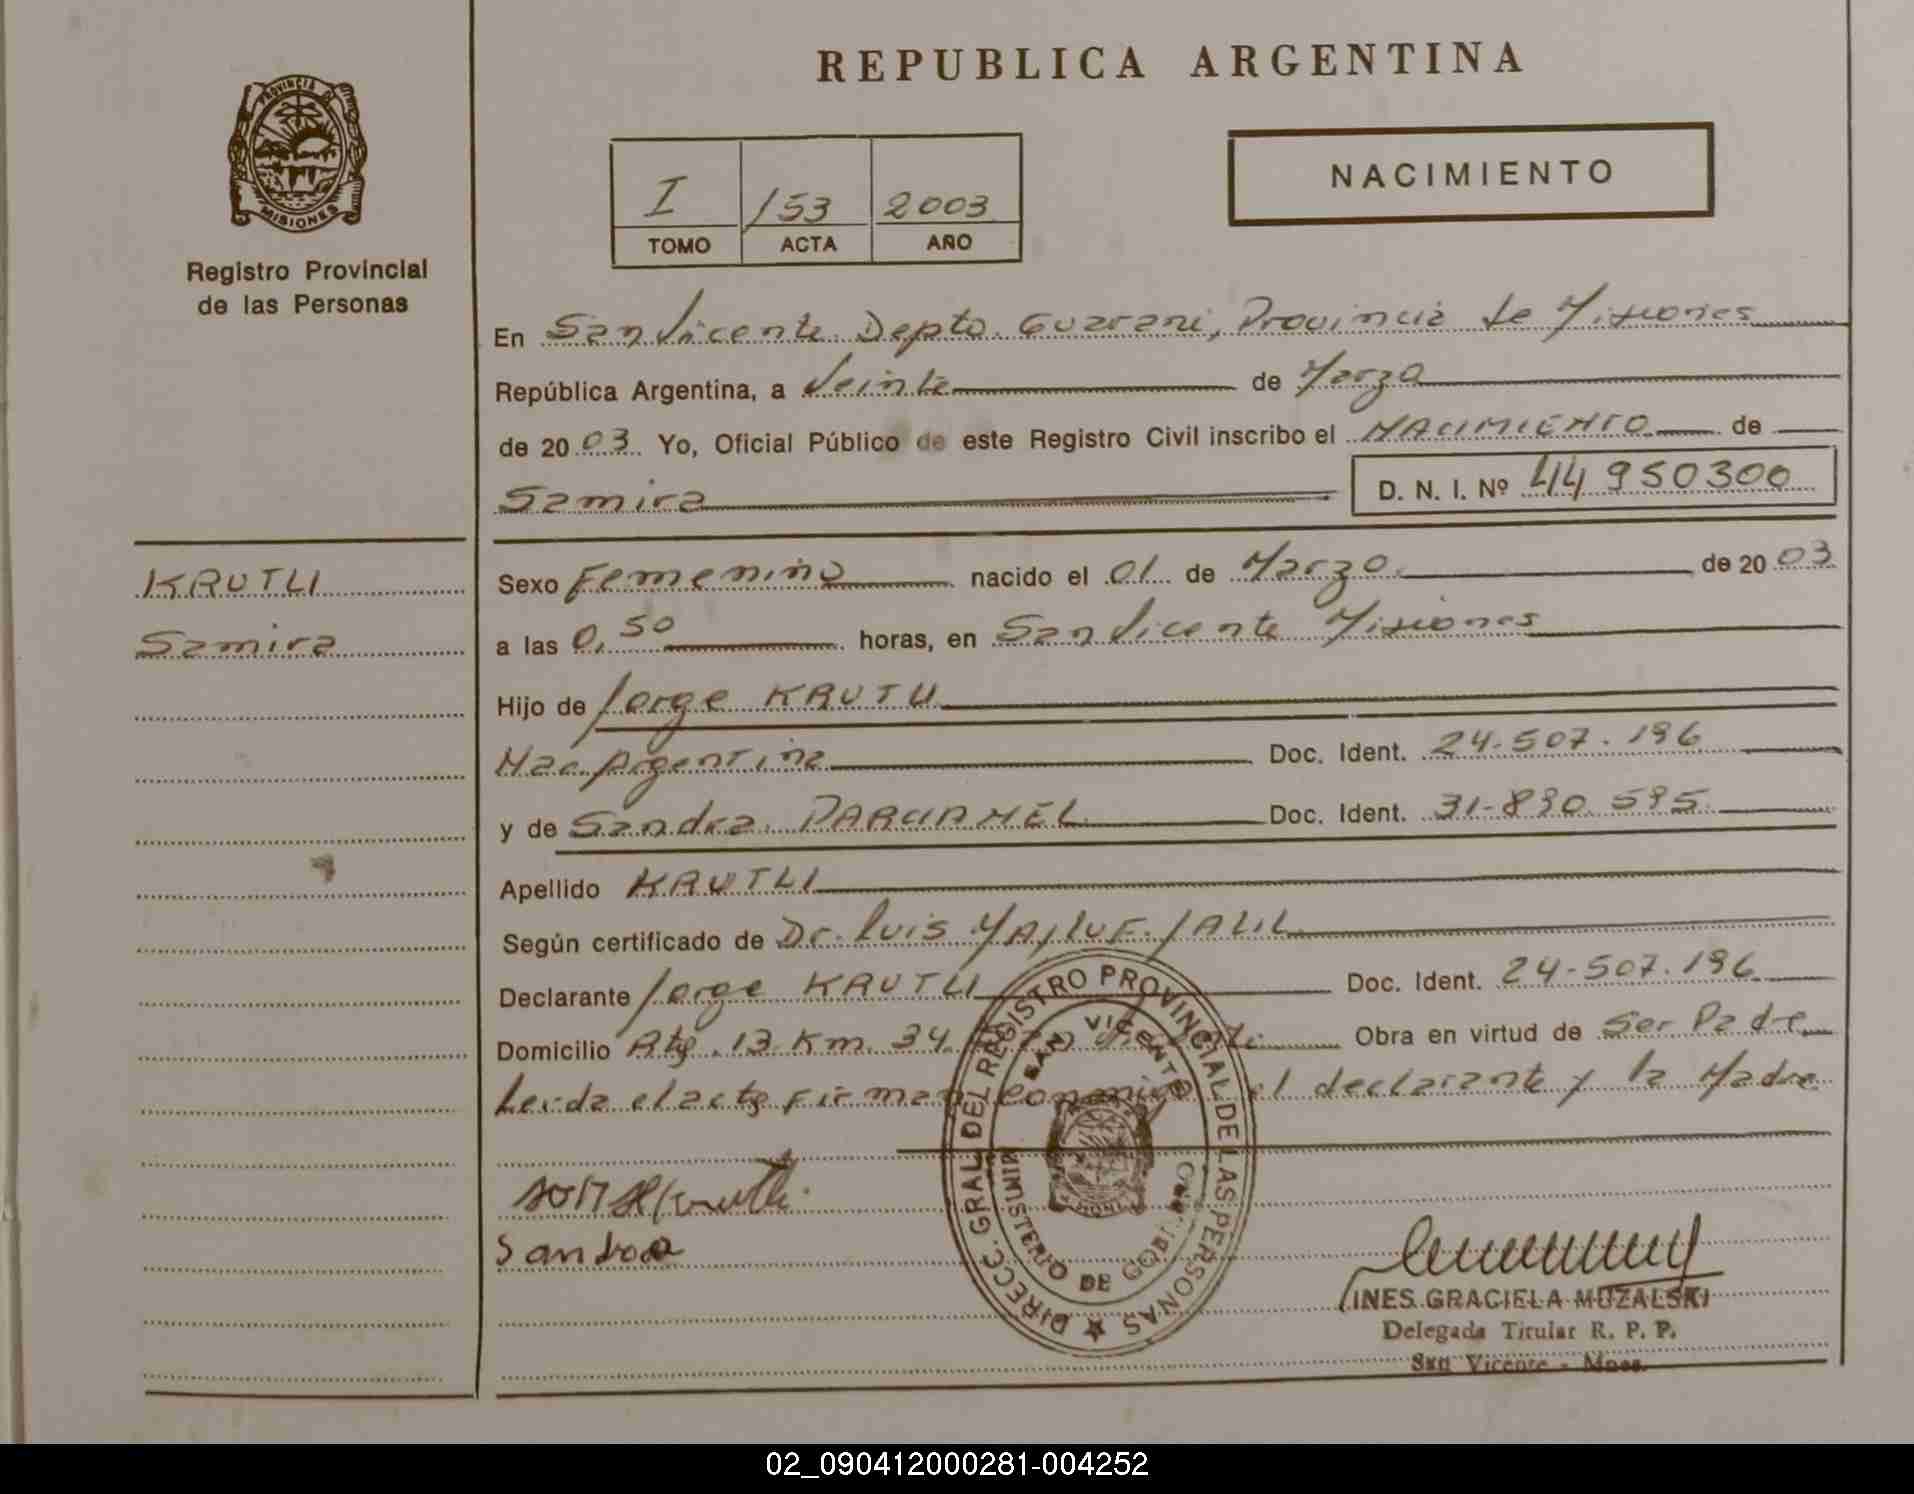 REPUBLICA ARGENTINA
PROVINCIA DE
MISIONES
Registro Provincial
de las Personas
I /53 2003
TOMO ACTA AÑO
NACIMIENTO
En San Vicente Depto. Guarani, Provincia de Misiones
República Argentina, a Veinte de Marzo
de 20 03 Yo, Oficial Público de este Registro Civil inscribo el NACIMIENTO de
Samira D. N. I. Nº 44950300
KRUTLI
Samira
Sexo Femenino nacido el 01 de Marzo de 20 03
a las 0,50 horas, en San Vicente Misiones
Hijo de Jorge KRUTLI
Nac. Argentina Doc. Ident. 24.507.196
y de Sandra Doc. Ident. 31.890.595
Apellido KRUTLI
Según certificado de Dr. Luis JALIL
Declarante Jorge KRUTLI Doc. Ident. 24.507.196
Domicilio Km. 34 San Vicente Obra en virtud de Ser Padre
Leida el acta firman conmigo el declarante y la Madre
Sandra
DIRECC. GRAL. DEL REGISTRO PROVINCIAL DE LAS PERSONAS
SAN VICENTE
MINISTERIO DE GOBIERNO
INES GRACIELA MUZALSKI
Delegada Titular R. P. P.
San Vicente - Mnes.
02_090412000281-004252